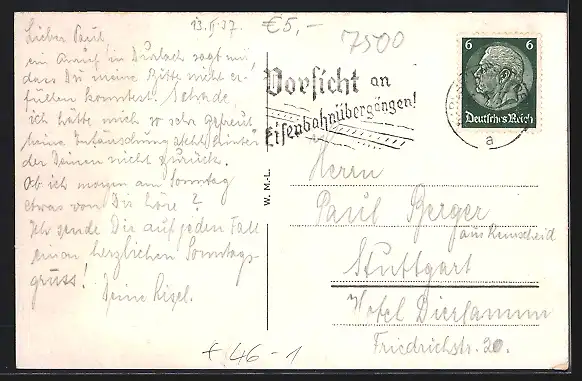 13.II.37.
€5,-
7500
Lieber Paul
ein Anruf in Durlach sagt mir,
dass Du meine Bitte nicht er-
füllen konntest. Schade,
ich hatte mich so sehr gefreut
meine Enttäuschung steht hinter
der Deinen nicht zurück.
Ob ich morgen am Sonntag
etwas von Dir höre?
Ich sende Dir auf jeden Fall
einen herzlichen Sonntags-
gruss!
Deine
Vorsicht an
Eisenbahnübergängen!
6 6
Deutsches Reich
a
W. M.-L.
Herrn
Paul Berger
aus Remscheid
Stuttgart
Hotel Dierlamm
Friedrichstr. 20.
+ 46-1